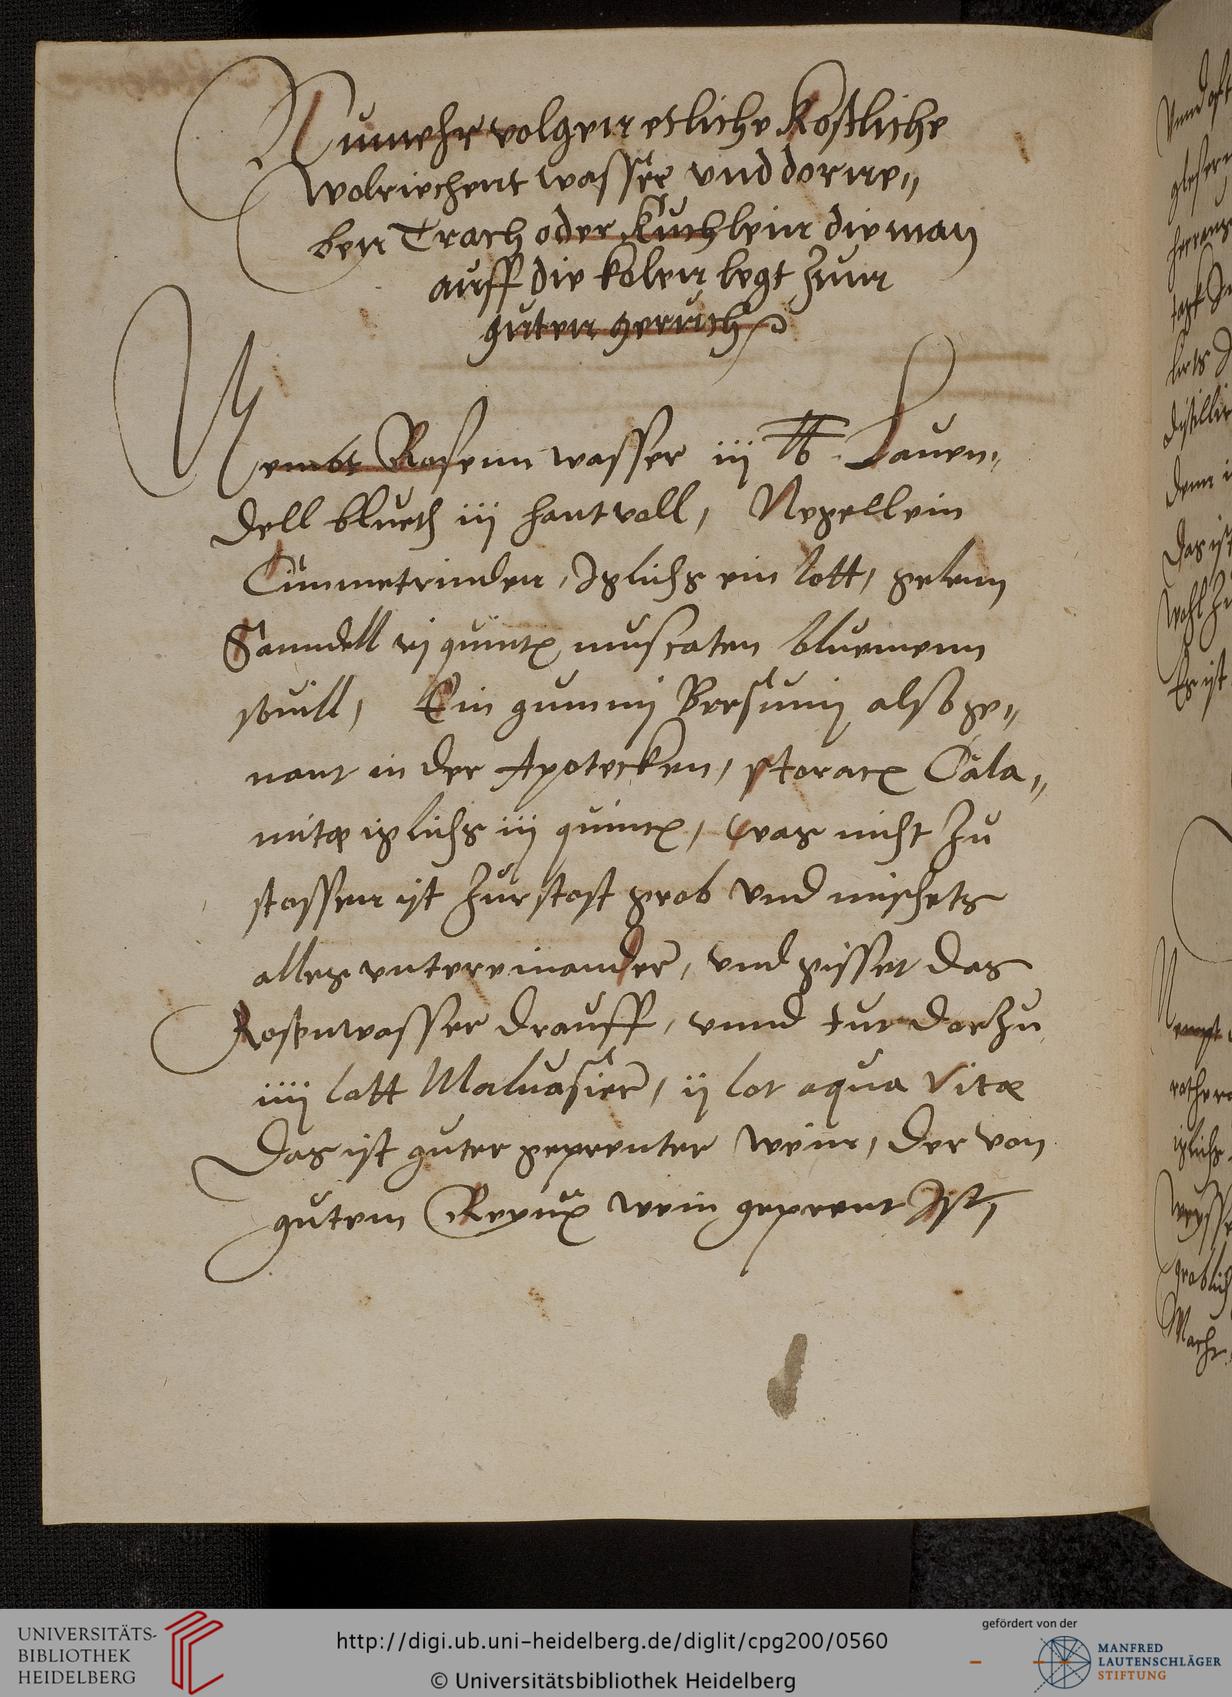 Nunmehr volgen etliche kostliche
wolriechent wasser vnd dorne„
ben Trach oder Kuchlein die man
auff die kolen legt zum
guten geruch
Nembt Rosenn wasser iij ℔. Lauen„
dell blueth iij hantvoll, Negellein
Cimmetrinden, Iglichs ein lott, gelenn
Sanndell vj quintx muscaten bluemenn
souill, Ein gummj Bersuinj also ge„
nant in der Apotecken, storacx Cala„
mitæ iglichs iij quintx, was nicht zu
stossen ist zurstost grob vnd mischets
alles vntereinander, vnd gisset das
Rosenwasser drauff, vnnd tut darzu
iiij lott Maluasier, ij lot aqua vitæ
Das ist guter geprenter wein, der von
gutem wein geprent Ist,
UNIVERSITÄTS-
BIBLIOTHEK
HEIDELBERG
http://digi.ub.uni-heidelberg.de/diglit/cpg200/0560
© Universitätsbibliothek Heidelberg
gefördert von der
MANFRED
LAUTENSCHLÄGER
STIFTUNG